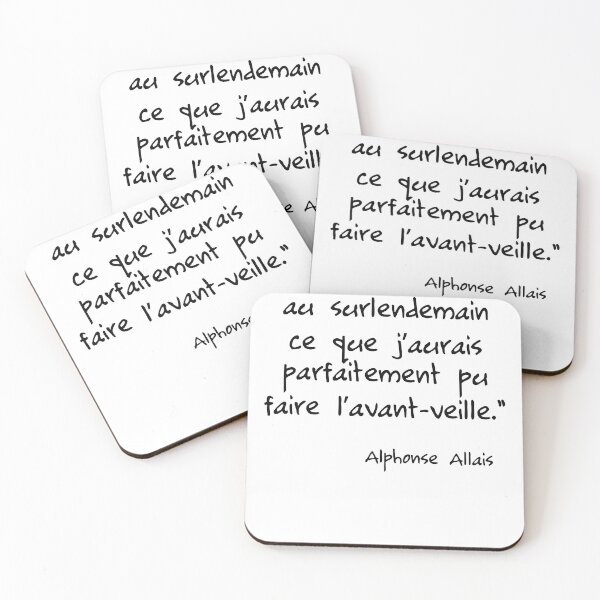 au surlendemain
ce que j'aurais
parfaitement pu
faire l'avant-veill
se A
au surlendemain
ce que j'aurais
parfaitement pu
faire l'avant-veille."
Alphonse Allais
au surlendemain
ce que j'aurais
parfaitement pu
faire l'avant-veille."
Alphonse
au surlendemain
ce que j'aurais
parfaitement pu
faire l'avant-veille."
Alphonse Allais